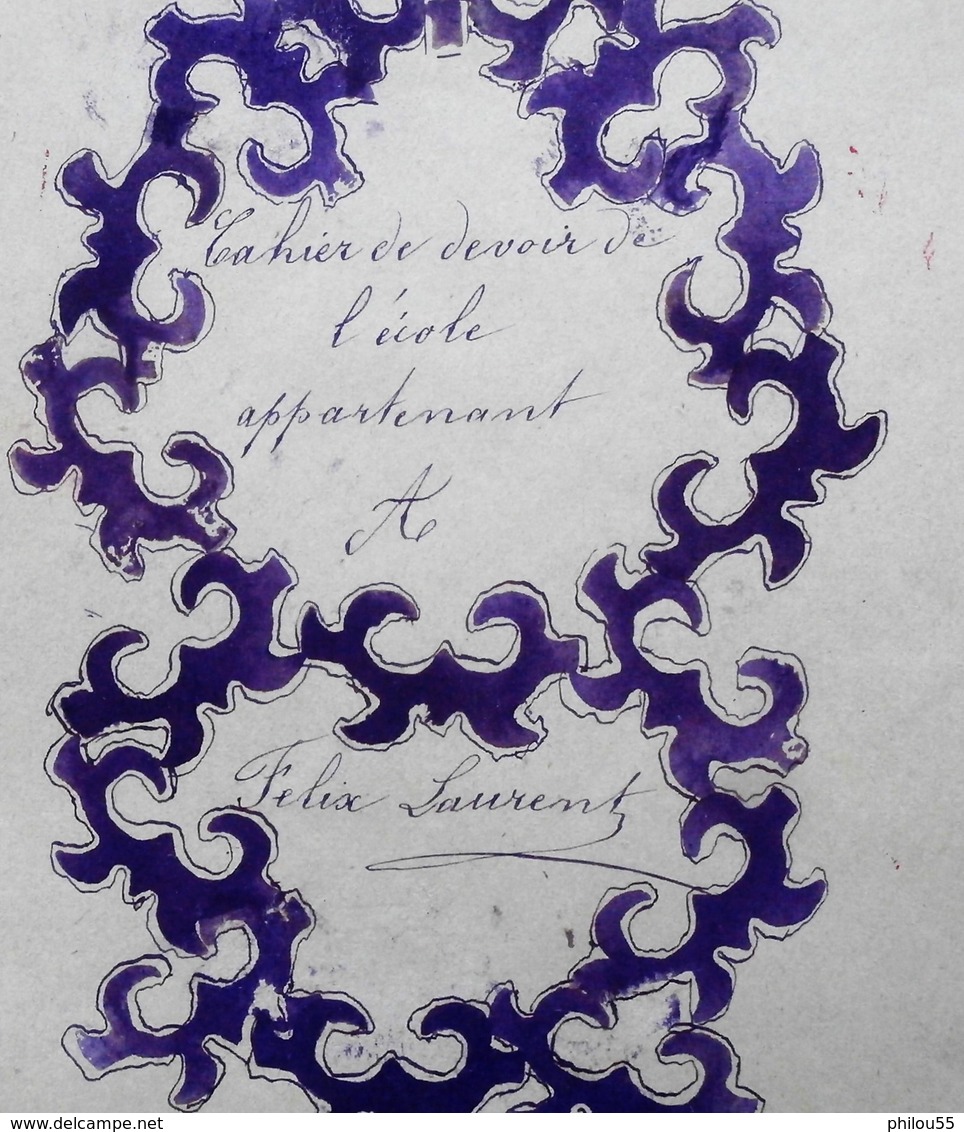 Cahier de devoir de
l'école
appartenant
A
Felix Laurent
www.delcampe.net
philou55